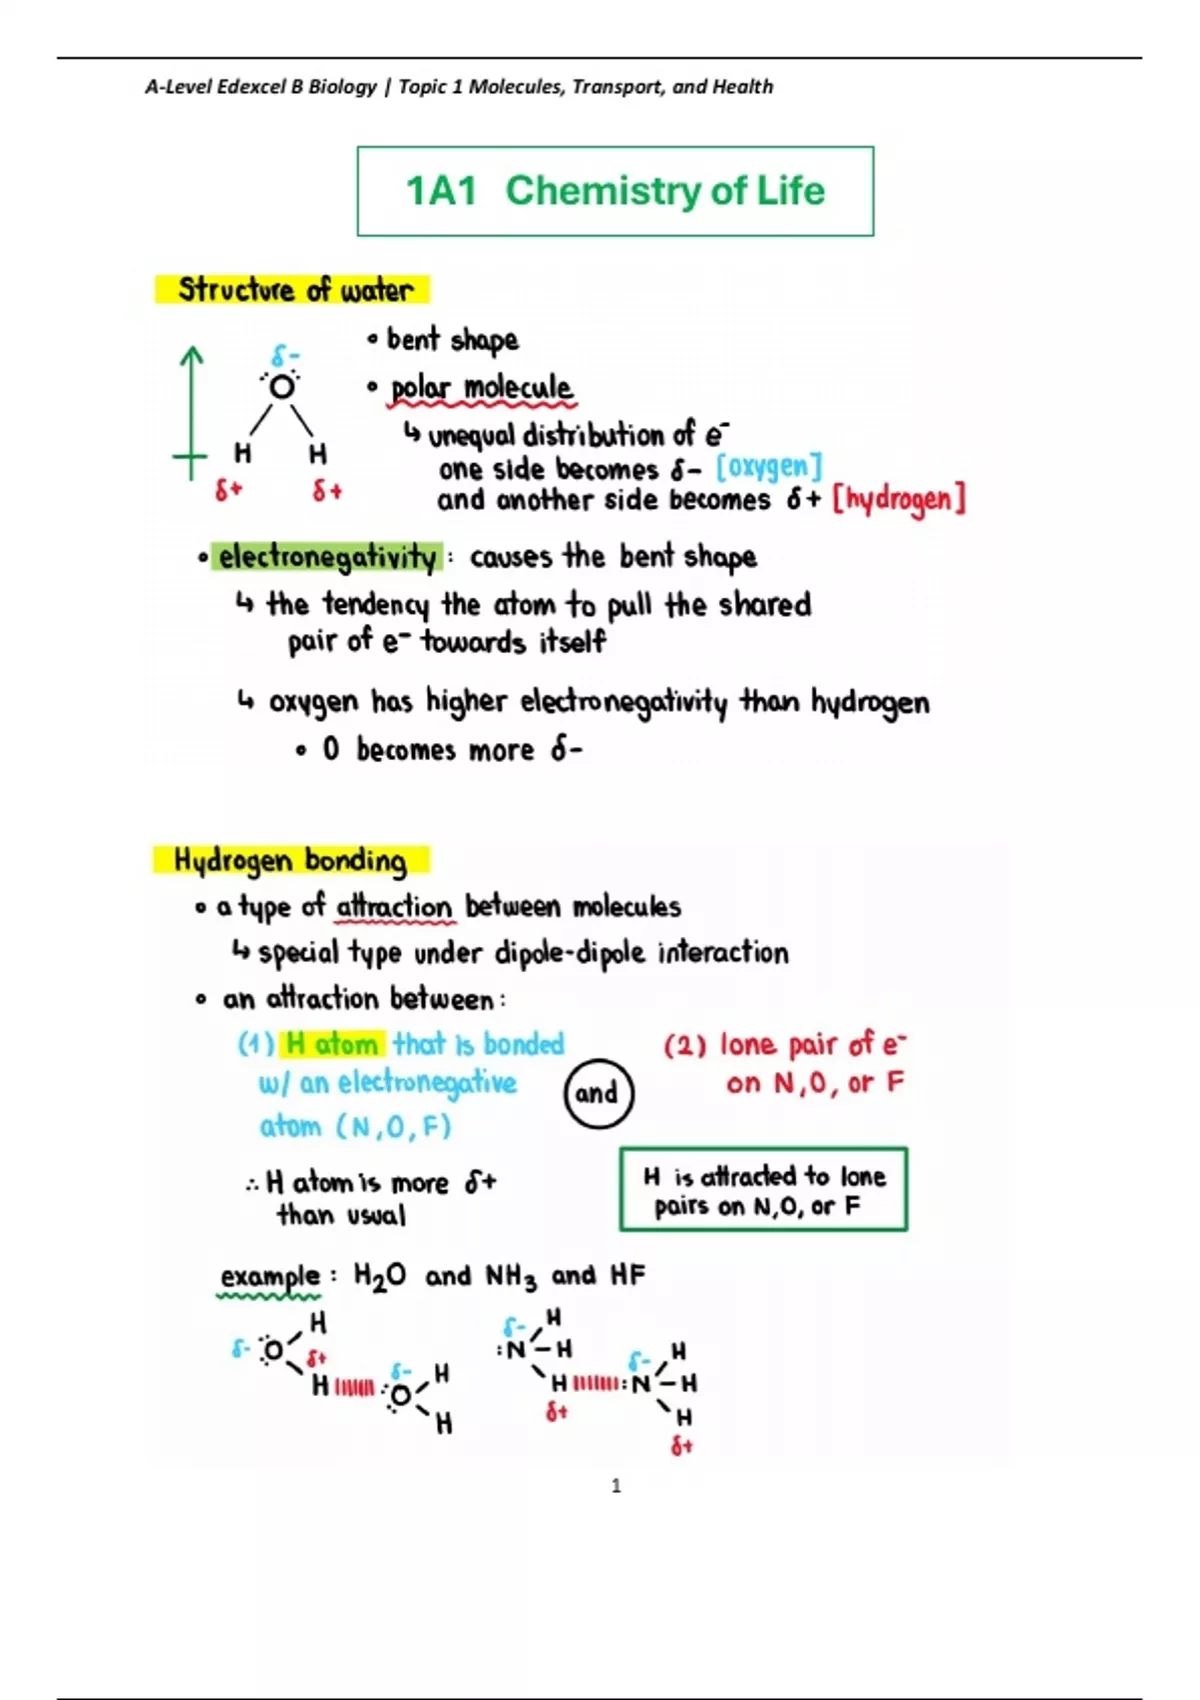 A-Level Edexcel B Biology | Topic 1 Molecules, Transport, and Health
1A1 Chemistry of Life
Structure of water
• bent shape
δ-
O
• polar molecule
H H
δ+ δ+
↳ unequal distribution of e⁻
one side becomes δ- [oxygen]
and another side becomes δ+ [hydrogen]
• electronegativity : causes the bent shape
↳ the tendency the atom to pull the shared
pair of e⁻ towards itself
↳ oxygen has higher electronegativity than hydrogen
• O becomes more δ-
Hydrogen bonding
• a type of attraction between molecules
↳ special type under dipole-dipole interaction
• an attraction between:
(1) H atom that is bonded
w/ an electronegative
atom (N,O,F)
and
(2) lone pair of e⁻
on N,O, or F
∴ H atom is more δ+
than usual
H is attracted to lone
pairs on N,O, or F
example : H₂O and NH₃ and HF
H
δ- O
δ+
H δ- O H
H
δ- H
:N – H
H δ- :N – H
H
δ+ H
δ+
1